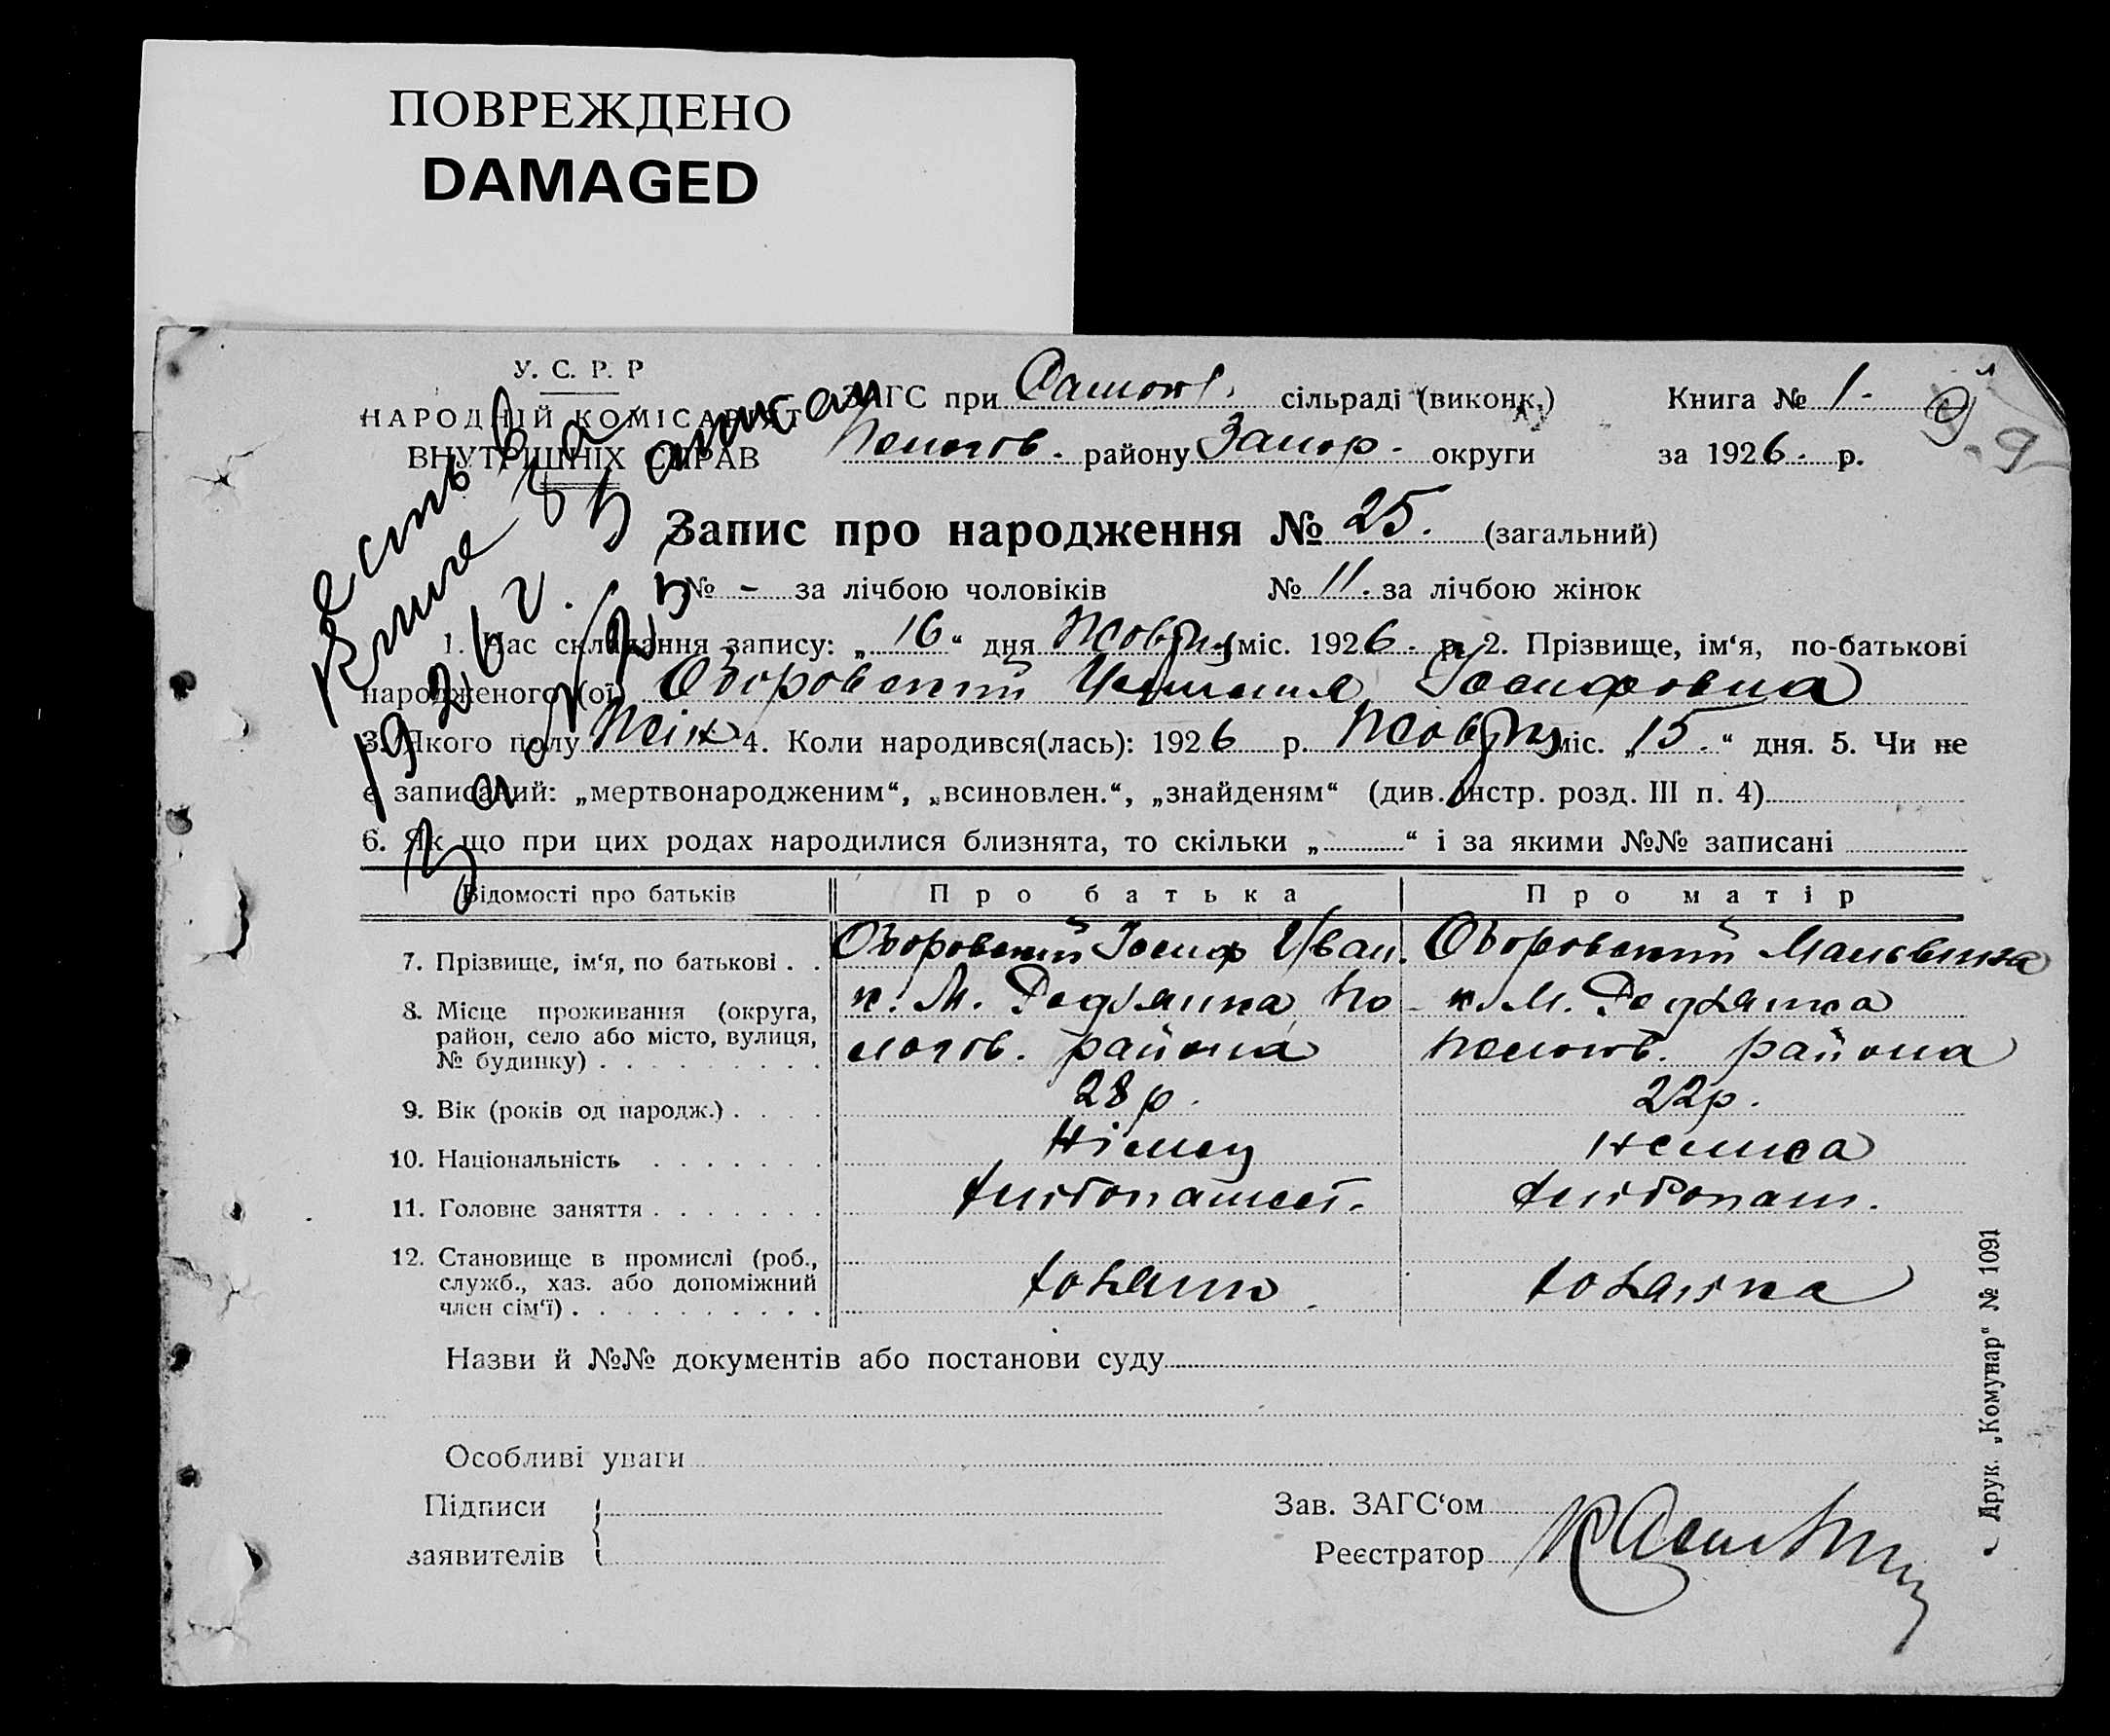 ПОВРЕЖДЕНО
DAMAGED
У. С. Р. Р
НАРОДНІЙ КОМІСАРІЯТ
ВНУТРІШНІХ СПРАВ
ЗАГС при сільраді (виконк.)
району Запор. округи
Книга № 1.
за 1926. р.
9
9
есть в
книге за
1926 г.
записан
за № 25
Запис про народження № 25. (загальний)
№ - за лічбою чоловіків № 11. за лічбою жінок
1. Час складання запису: „16“ дня Жовтн міс. 1926. р. 2. Прізвище, ім‘я, по-батькові
народженого (ої) Осифовна
3. Якого полу Жін 4. Коли народився(лась): 1926 р. Жовтн міс. „15.“ дня. 5. Чи не
є записаний: „мертвонародженим“, „всиновлен.“, „знайденям“ (див. інстр. розд. III п. 4)
6. Як що при цих родах народилися близнята, то скільки „ “ і за якими №№ записані
Відомості про батьків Про батька Про матір
7. Прізвище, ім‘я, по батькові . . Иван.
8. Місце проживання (округа, район, село або місто, вулиця, № будинку) к. М. По
логов. района
к. М.
района
9. Вік (років од народж.) 28 р. 22 р.
10. Національність Німец Немка
11. Головне заняття хлібопашест. хлібопаш.
12. Становище в промислі (роб., служб., хаз. або допоміжний член сім‘ї) хозаин хозайка
Назви й №№ документів або постанови суду
Особливі уваги
Підписи
заявителів
Зав. ЗАГС‘ом
Реєстратор
Друк. „Комунар“ № 1091